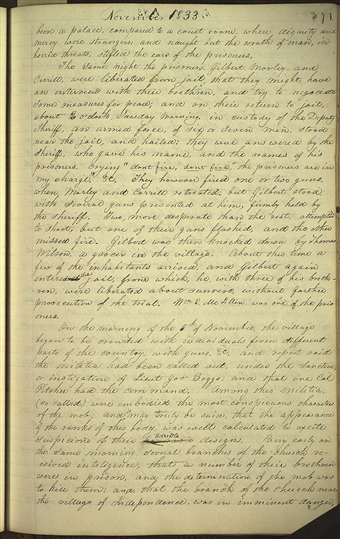 November 1833.
been a palace, compared to a court room, where dignity and
mercy were strangers, and naught but the wrath of man, in
horrid threats, stifled the ears of the prisoners.
The same night the prisoners, Gilbert, Morley, and
Corrill, were liberated from jail, that they might have
an interview with their brethren, and try to negociate
some measures for peace; and on their return to jail,
about 2 o'clock, Tuesday morning, in custody of the Deputy
Sheriff, an armed force, of six or seven men, stood
near the jail, and hailed: they were answered by the
Sheriff, who gave his name, and the names of his
prisoners, crying "don't fire, don't fire, the prisoners are in
my charge, &c. They however fired one or two guns,
when Morley and Corrill retreated; but Gilbert stood
with several guns presented at him, firmly held by
the Sheriff. Two, more desperate than the rest, attempted
to shoot, but one of their guns flashed, and the other
missed fire. Gilbert was then knocked down by Thomas
Wilson, a grocer in the village. About this time a
few of the inhabitants arrived, and Gilbert again
entered jail, from which, he, with three of his breth-
ren, were liberated about sunrise, without farther
prosecution of the trial. Wm. E. McLellin was one of the pris
oners.
On the morning of the 5th of November, the village
began to be crowded with individuals from different
parts of the country, with guns, &c. and report said
the militia had been called out, under the sanction
or instigation of Lieut. Gov. Boggs; and that one Col.
Pitcher had the command. Among this militia,
(so called) were embodied the most conspicuous characters
of the mob; and may truly be said, that the appearance
of the ranks of this body, was well calculated to excite
suspicions of their horrible designs. Very early on
the same morning, several branches of the church re-
ceived inteligence, that a number of their brethren
were in prison, and the determination of the mob was
to kill them; and that the branch of the church near
the village of Independence, was in imminent danger,